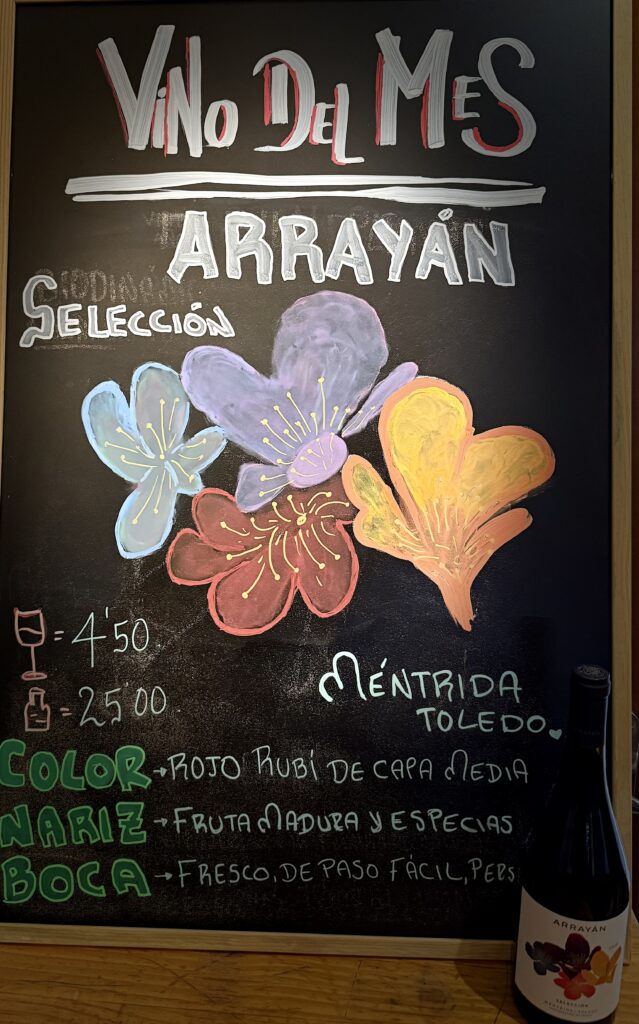 VINO DEL MES
ARRAYÁN
SELECCIÓN
= 4'50
= 25'00
MÉNTRIDA
TOLEDO
COLOR → ROJO RUBÍ DE CAPA MEDIA
NARIZ → FRUTA MADURA Y ESPECIAS
BOCA → FRESCO, DE PASO FÁCIL, PERS
ARRAYÁN
SELECCIÓN
MÉNTRIDA-TOLEDO